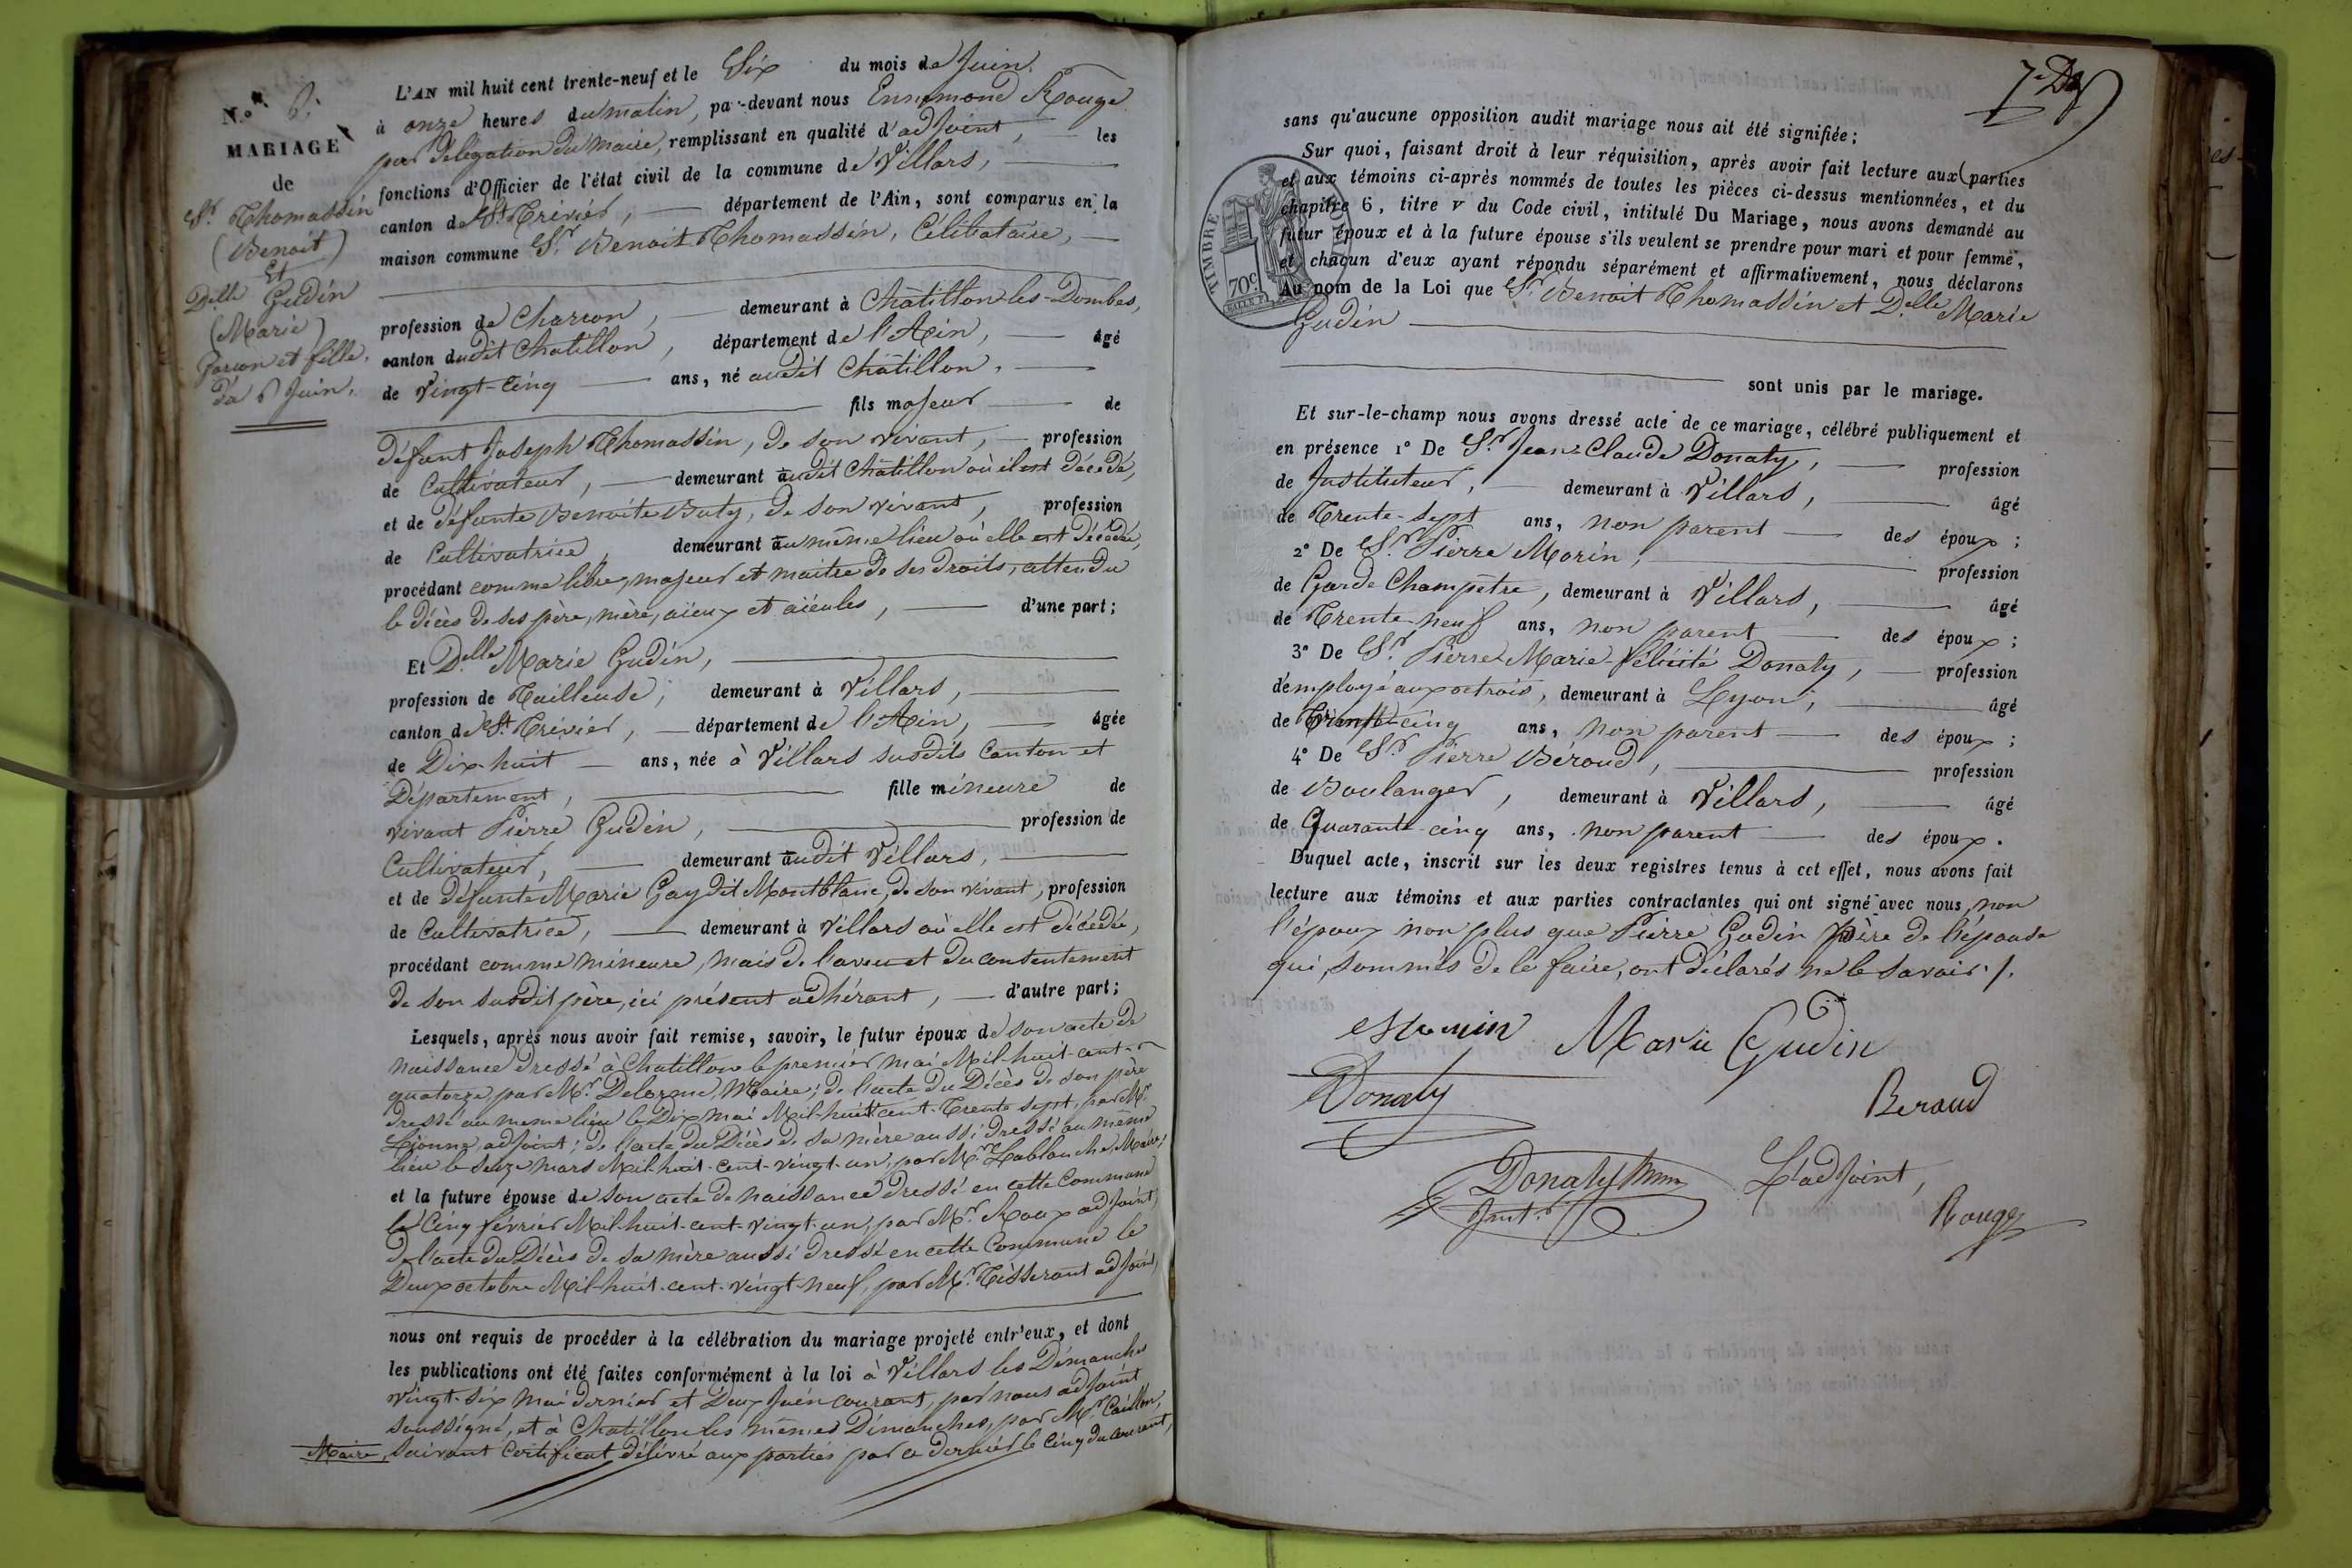 N.o 6.
MARIAGE
de
Sr. Thomassin
(Benoit)
Et
Delle Gudin
(Marie)
Garçon et fille.
du 6 Juin.
L'AN mil huit cent trente-neuf et le Six du mois de Juin,
à onze heures du matin, par-devant nous Ennemond Rouge
par délégation du Maire, remplissant en qualité d'adjoint, les
fonctions d'Officier de l'état civil de la commune de Villars,
canton de St. Trivier, département de l'Ain, sont comparus en la
maison commune Sr. Benoit Thomassin, Célibataire,
profession de Charron, demeurant à Châtillon-les-Dombes,
canton dudit Chatillon, département de l'Ain, âgé
de vingt-cinq ans, né audit Châtillon,
fils majeur de
défunt Joseph Thomassin, de son vivant, profession
de Cultivateur, demeurant audit Châtillon où il est décédé,
et de défunte Benoite Buty, de son vivant, profession
de Cultivatrice, demeurant au même lieu où elle est décédée,
procédant comme libre, majeur et maitre de ses droits, attendu
le décès de ses père, mère, aïeux et aïeules, d'une part;
Et Delle Marie Gudin,
profession de Tailleuse, demeurant à Villars,
canton de St. Trivier, département de l'Ain, âgée
de Dix-huit ans, née à Villars susdits Canton et
Département, fille mineure de
vivant Pierre Gudin, profession de
Cultivateur, demeurant audit Villars,
et de défunte Marie Gay dit Montblanc, de son vivant, profession
de Cultivatrice, demeurant à Villars où elle est décédée,
procédant comme mineure, mais de l'aveu et du consentement
de son susdit père, ici présent adhérant, d'autre part;
Lesquels, après nous avoir fait remise, savoir, le futur époux de son acte de
naissance dressé à Chatillon le premier mai Mil-huit-cent-
quatorze, par Mr. Delorme, Maire; de l'acte du Décès de son père
dressé au meme lieu le Dix mai Mil-huit-cent-Trente sept, par Mr.
adjoint; de l'acte du Décès de sa mère aussi dressé au même
lieu le Seize mars Mil-huit-cent-vingt-un, par Mr. Lablanche, Maire;
et la future épouse de son acte de naissance dressé en cette Commune
le Cinq février Mil-huit-cent-vingt-un, par Mr. Roux adjoint,
de l'acte du Décès de sa mère aussi dressé en cette Commune le
Deux octobre Mil-huit-cent-vingt-neuf, par Mr. Tisserant adjoint,
nous ont requis de procéder à la célébration du mariage projeté entr'eux, et dont
les publications ont été faites conformément à la loi à Villars les Dimanches
vingt-six mai dernier et Deux Juin courant, par nous adjoint
soussigné, et à Chatillon les mêmes Dimanches, par Mr. Caillon,
Maire, suivant certificat délivré aux parties par ce dernier le Cinq du courant,
sans qu'aucune opposition audit mariage nous ait été signifiée;
Sur quoi, faisant droit à leur réquisition, après avoir fait lecture aux parties
et aux témoins ci-après nommés de toutes les pièces ci-dessus mentionnées, et du
chapitre 6, titre V du Code civil, intitulé Du Mariage, nous avons demandé au
futur époux et à la future épouse s'ils veulent se prendre pour mari et pour femme,
et chacun d'eux ayant répondu séparément et affirmativement, nous déclarons
Au nom de la Loi que Sr. Benoit Thomassin et Delle Marie
Gudin
TIMBRE
70c
sont unis par le mariage.
Et sur-le-champ nous avons dressé acte de ce mariage, célébré publiquement et
en présence 1° De Sr. Jean-Claude Donaty, profession
de Instituteur, demeurant à Villars, âgé
de Trente-sept ans, non parent des époux;
2° De Sr. Pierre Morin, profession
de Garde Champêtre, demeurant à Villars, âgé
de Trente-neuf ans, non parent des époux;
3° De Sr. Pierre-Marie-Félicité Donaty, profession
d'employé aux octrois, demeurant à Lyon, âgé
de Trente-cinq ans, non parent des époux;
4° De Sr. Pierre Béroud, profession
de Boulanger, demeurant à Villars, âgé
de Quarante-cinq ans, non parent des époux.
Duquel acte, inscrit sur les deux registres tenus à cet effet, nous avons fait
lecture aux témoins et aux parties contractantes qui ont signé avec nous, non
l'époux non plus que Pierre Gudin père de l'épouse
qui, sommés de le faire, ont déclarés ne le savoir./.
Marie Gudin
Donaty
Beroud
Donaty
Inst.r
L'adjoint,
Rouge